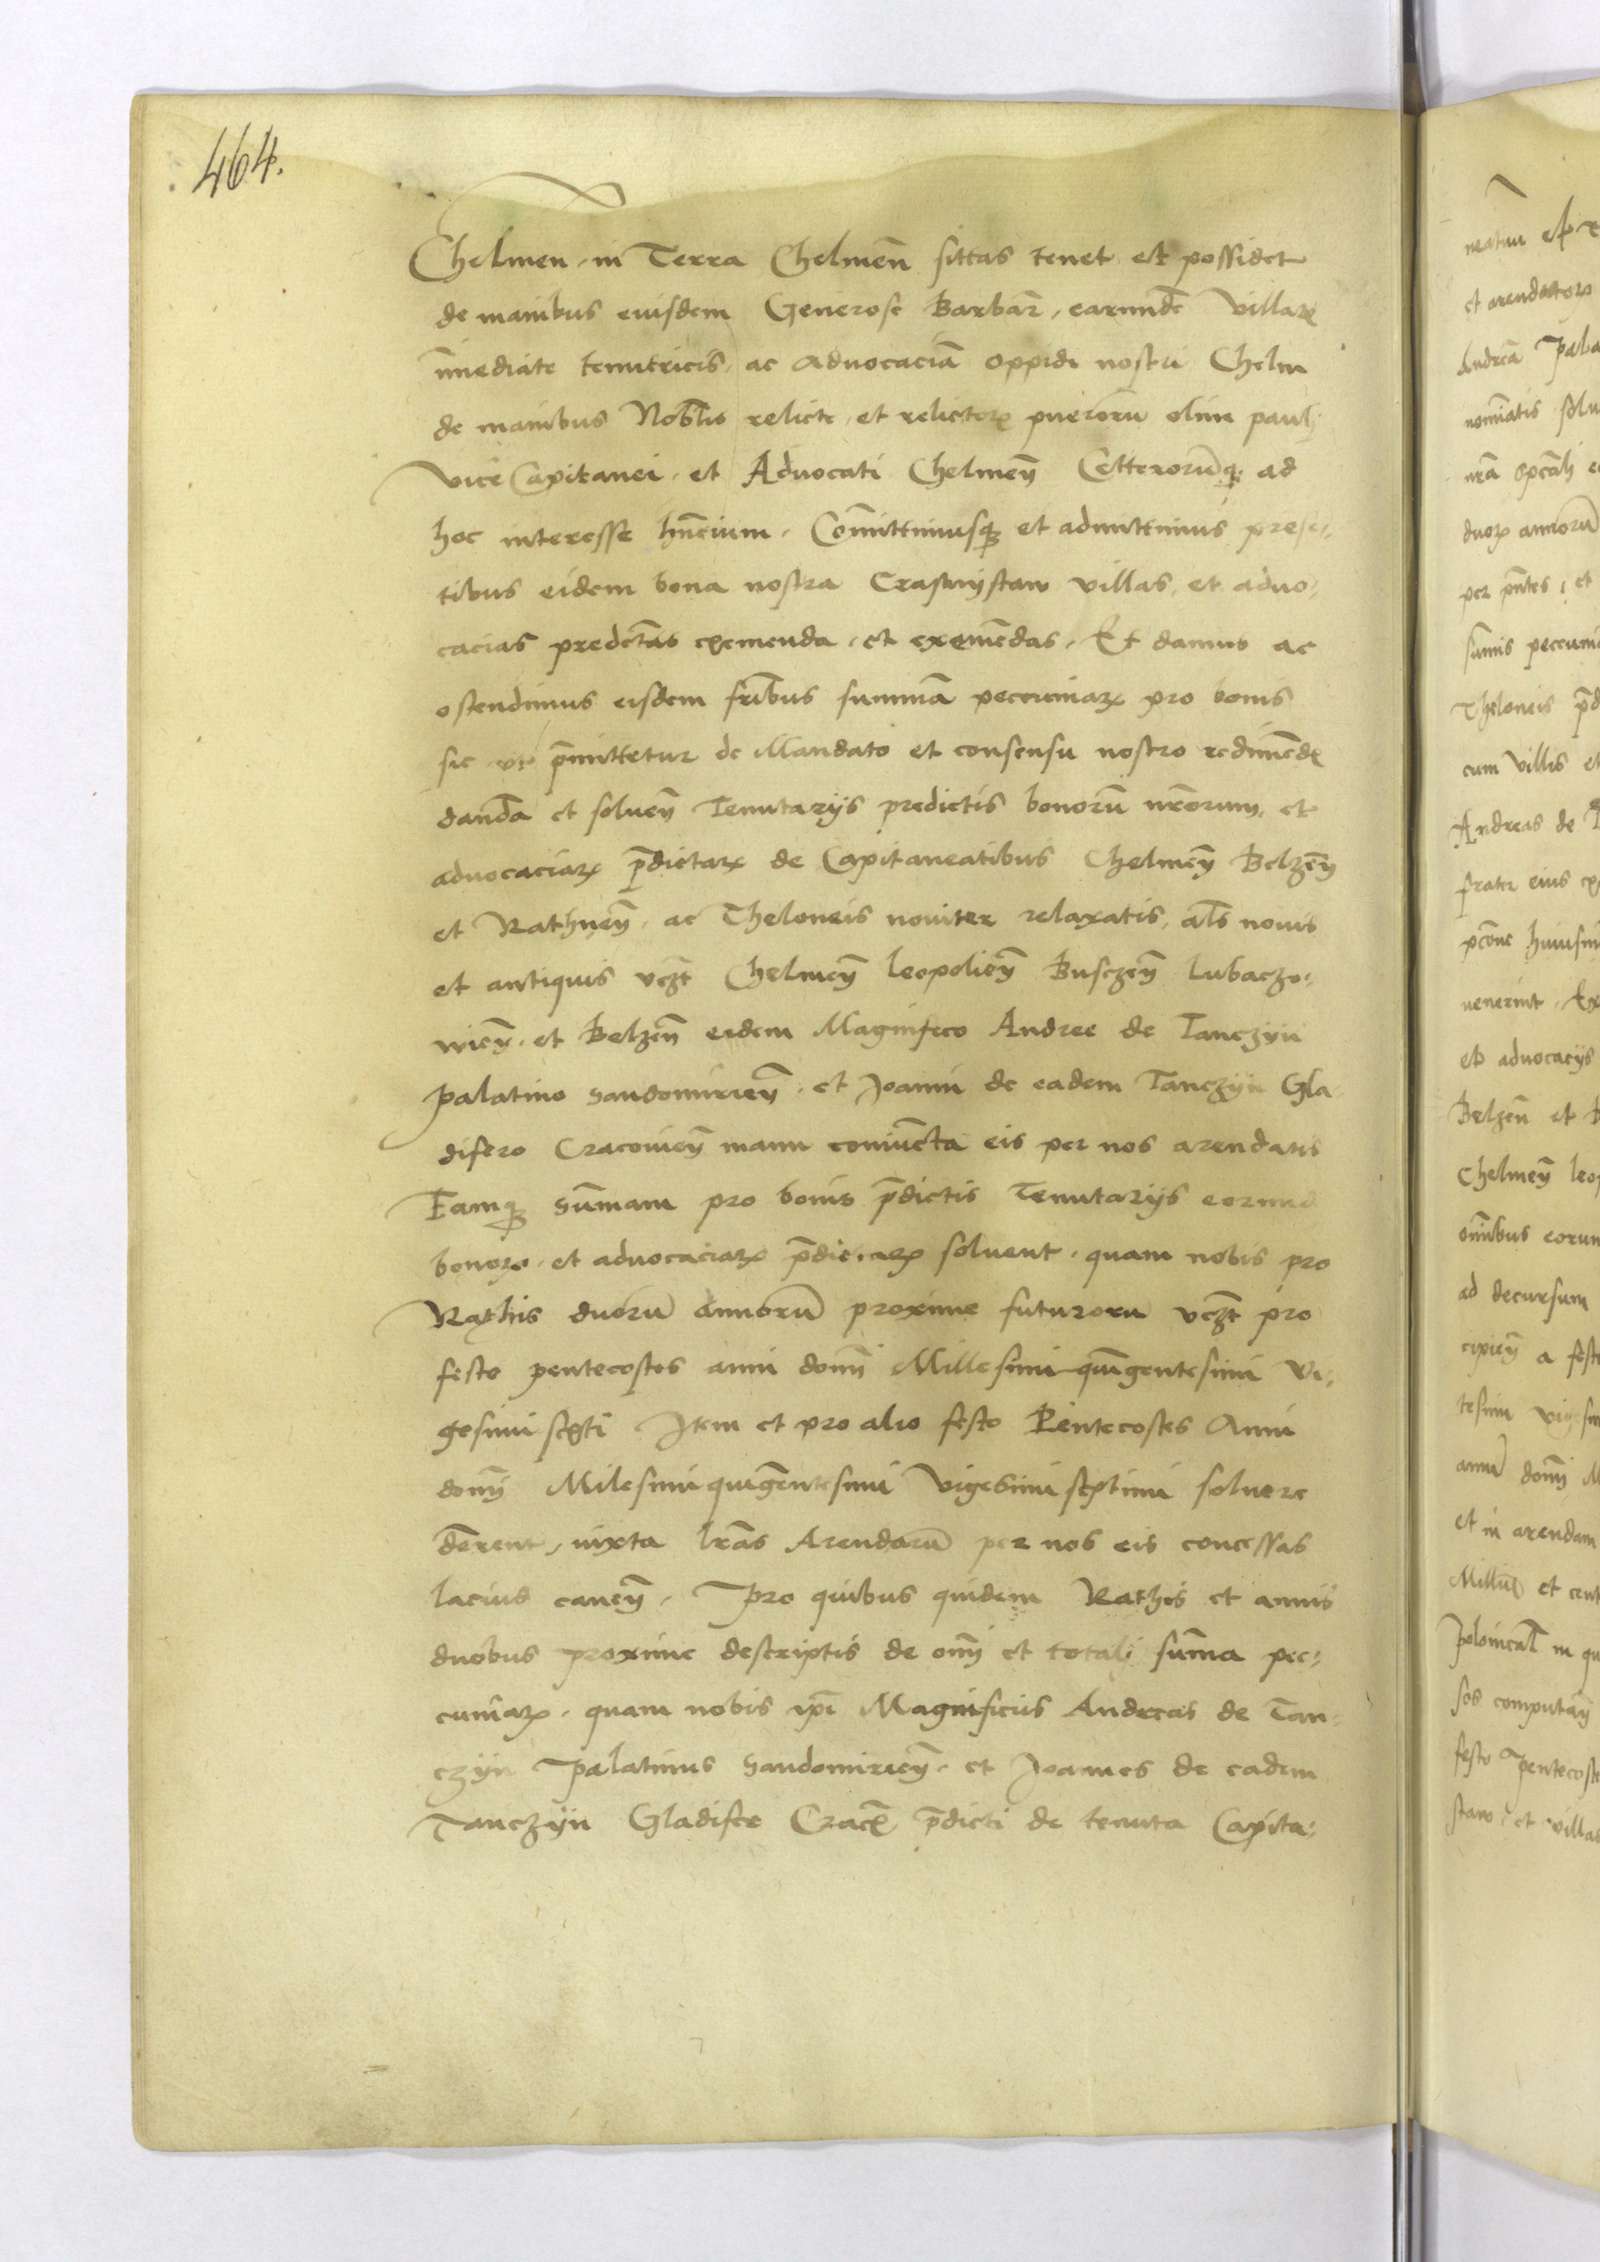 464.
Chelmen. in Terra Chelmen̄ sittas tenet et possidet
de manibus eiusdem Generose Barbar̄, earundē Villarꝝ
īmediate tenutricis, ac advocaciā oppidi nostri Chelm
de manibus Nobl̄is relicte et relictorꝝ puerorū olim pauli
vice Capitanei. et Advocati Chelmen̄ Cetterorūqꝫ ad
hoc interesse hn̄cium. Com̄ittimusqꝫ et admittimus presē-
tibus eidem bona nostra Crasnystaw villas et advo-
cacias predctās exemenda, et exemēdas. Et damus ac
ostendimus eisdem fr̄ibus summā peccuniarꝝ pro bonis
sic ut p̄mittetur de Mandato et consensu nostro redimēdꝭ
dandā et solven̄ Tenutarijs predictis bonorū nr̄orum, et
advocaciarꝝ p̄dictarꝝ de Capitaneatibus Chelmen̄ Belzen̄
et Rathnen̄. ac Theloneis noviter relaxatis, al̄s novis
et antiquis vcꝫt Chelmen̄ leopolien̄ Busczen̄ Lubaczo-
wien̄. et Belzen̄ eidem Magnifico Andree de Tanczyn
palatino Sandomirien̄. et Joanni de eadem Tanczyn Gla
difero Cracovien̄ manu coniūcta eis per nos arendatis
Eamqꝫ Sum̄am pro bonis p̄dictis Tenutarijs eorund
bonorꝝ. et advocaciarꝝ p̄dictarꝝ solvent. quam nobis pro
Rathis duorū annorū proxime futurorū vcꝫt pro
festo pentecostes anni domī Millesimi quīgentesimi Vi-
gesimi sexti Item et pro alio festo Pentecostes Anni
domī Milesimi quīgentesimi Vigesimi septimi solvere
dēerent, iuxta lr̄as Arendarū per nos eis concessas
lacius canen̄. Pro quibus quidem Rathis et annis
duobus proxime descriptis de om̄i et totali sum̄a pec-
cuniarꝝ. quam nobis ip̄i Magnificus Andreas de Tan-
czyn Palatinus Sandomirien̄. et Joannes de eadem
Tanczyn Gladifer Cracꝭ p̄dicti de tenuta Capita-
neatuu et
et arendatorꝝ
Andreā Pala
nomīatis solu
duorꝝ annorū
per p̄ntes, et
sum̄is peccuni
Theloneis p̄d
cum villis et
Andreas de T
frater eius
venerint. Ex
et advocacijs
Belzen̄ et B
Chelmen̄ leop
om̄ibus eorun
ad decursum
cipien̄ a fest
tesimi vigesim
annū domī M
et in arendam
et cent
in qu
sos computan̄
festo Pentecoste
staw. et villas